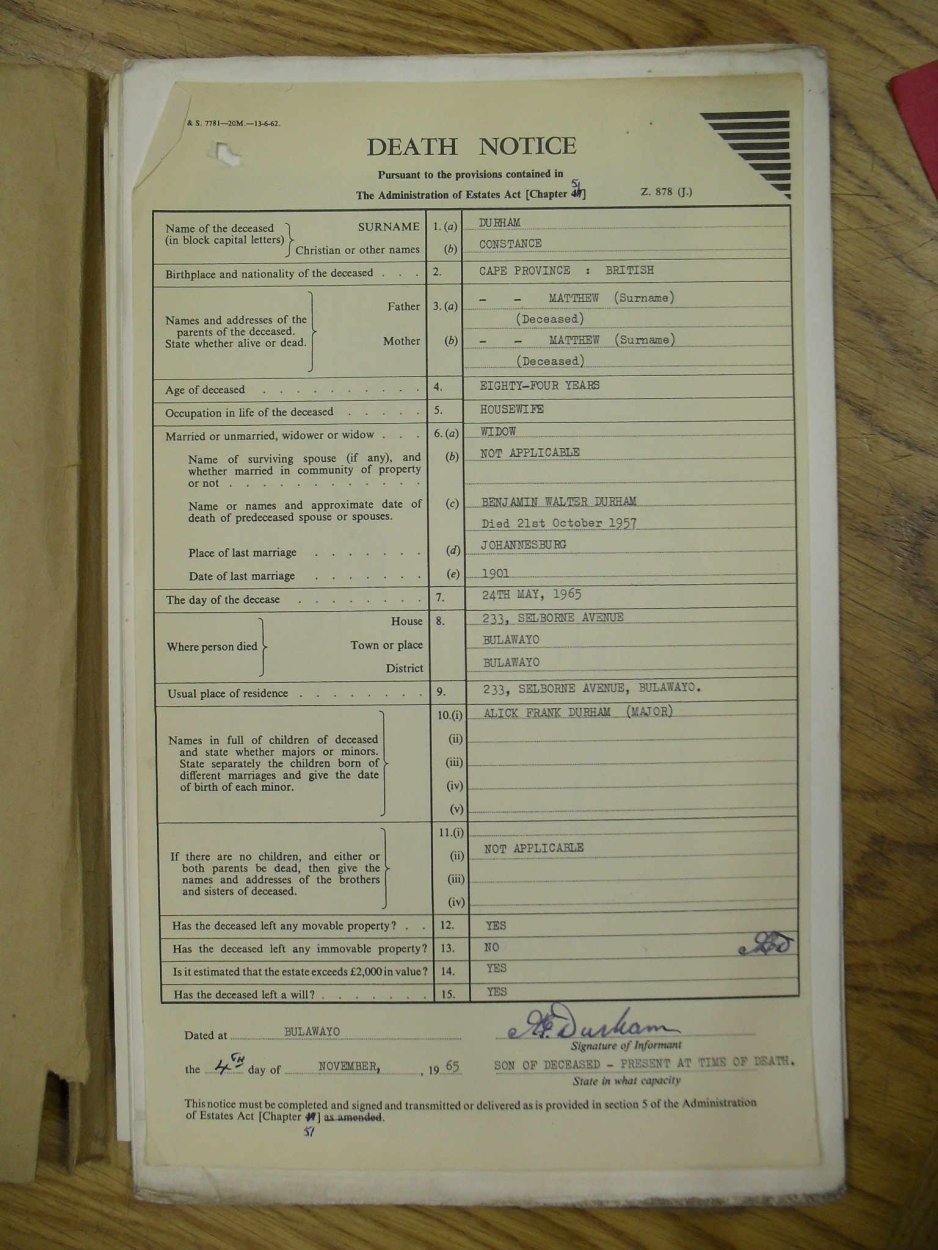 & S. 7781—20M.—13-6-62.
DEATH NOTICE
Pursuant to the provisions contained in
51
The Administration of Estates Act [Chapter ] Z. 878 (J.)
Name of the deceased (in block capital letters) SURNAME 1. (a) DURHAM
Christian or other names (b) CONSTANCE
Birthplace and nationality of the deceased . . . 2. CAPE PROVINCE : BRITISH
Names and addresses of the parents of the deceased. State whether alive or dead. Father 3. (a) – – MATTHEW (Surname)
(Deceased)
Mother (b) – – MATTHEW (Surname)
(Deceased)
Age of deceased . . . . . . . . . . 4. EIGHTY-FOUR YEARS
Occupation in life of the deceased . . . . . 5. HOUSEWIFE
Married or unmarried, widower or widow . . . 6. (a) WIDOW
Name of surviving spouse (if any), and (b) NOT APPLICABLE
whether married in community of property
or not . . . . . . . . . . . .
Name or names and approximate date of (c) BENJAMIN WALTER DURHAM
death of predeceased spouse or spouses. Died 21st October 1957
Place of last marriage . . . . . . . (d) JOHANNESBURG
Date of last marriage . . . . . . . (e) 1901
The day of the decease . . . . . . . . 7. 24TH MAY, 1965
Where person died House 8. 233, SELBORNE AVENUE
Town or place BULAWAYO
District BULAWAYO
Usual place of residence . . . . . . . . 9. 233, SELBORNE AVENUE, BULAWAYO.
10.(i) ALICK FRANK DURHAM (MAJOR)
Names in full of children of deceased (ii)
and state whether majors or minors.
State separately the children born of (iii)
different marriages and give the date
of birth of each minor. (iv)
(v)
11.(i)
If there are no children, and either or (ii) NOT APPLICABLE
both parents be dead, then give the
names and addresses of the brothers (iii)
and sisters of deceased.
(iv)
Has the deceased left any movable property? . . 12. YES
Has the deceased left any immovable property? 13. NO
Is it estimated that the estate exceeds £2,000 in value? 14. YES
Has the deceased left a will? . . . . . . . 15. YES
Dated at BULAWAYO A.F. Durham
Signature of Informant
the 4TH day of NOVEMBER, , 19 65 SON OF DECEASED – PRESENT AT TIME OF DEATH.
State in what capacity
This notice must be completed and signed and transmitted or delivered as is provided in section 5 of the Administration
of Estates Act [Chapter ] as amended.
51